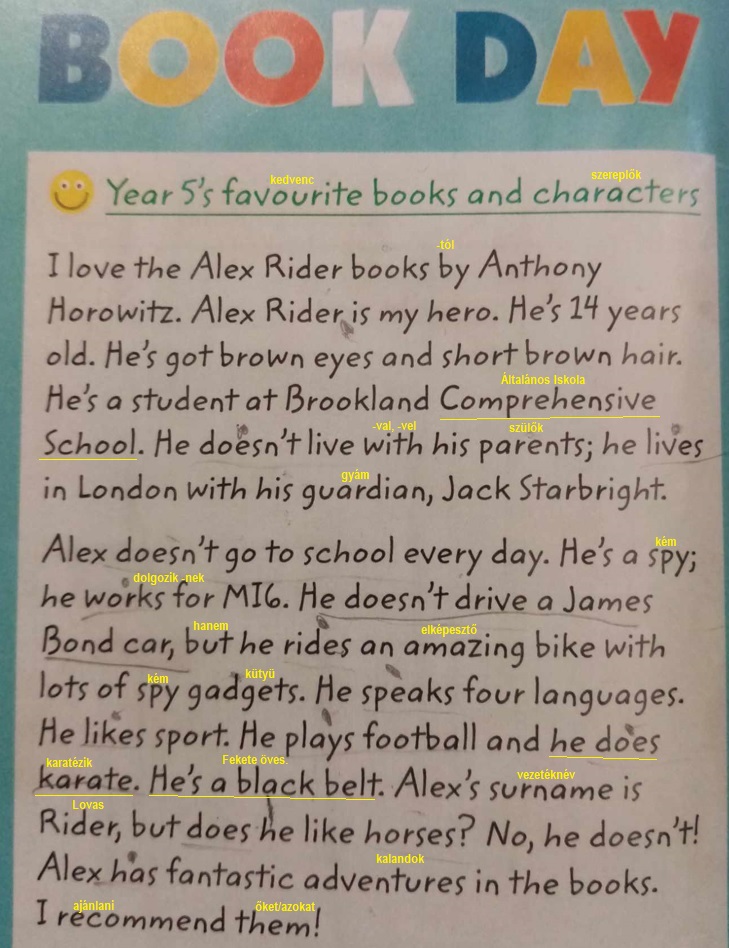 BOOK DAY
kedvenc szereplők
Year 5's favourite books and characters
-tól
I love the Alex Rider books by Anthony
Horowitz. Alex Rider is my hero. He's 14 years
old. He's got brown eyes and short brown hair.
Általános Iskola
He's a student at Brookland Comprehensive
-val, -vel szülők
School. He doesn't live with his parents; he lives
gyám
in London with his guardian, Jack Starbright.
kém
Alex doesn't go to school every day. He's a spy;
dolgozik -nek
he works for MI6. He doesn't drive a James
hanem elképesztő
Bond car, but he rides an amazing bike with
kém kütyü
lots of spy gadgets. He speaks four languages.
He likes sport. He plays football and he does
karatézik Fekete öves. vezetéknév
karate. He's a black belt. Alex's surname is
Lovas
Rider, but does he like horses? No, he doesn't!
kalandok
Alex has fantastic adventures in the books.
ajánlani őket/azokat
I recommend them!